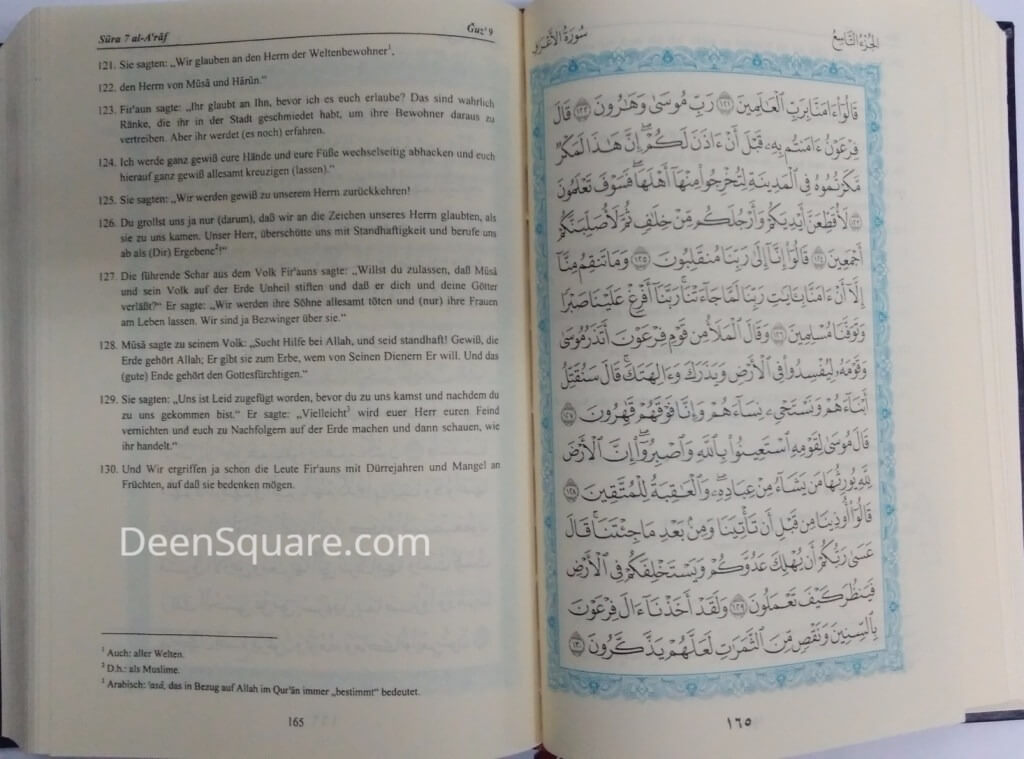 Sūra 7 al-A'rāf
Ǧuz' 9
121. Sie sagten: „Wir glauben an den Herrn der Weltenbewohner¹,
122. den Herrn von Mūsā und Hārūn.“
123. Fir'aun sagte: „Ihr glaubt an Ihn, bevor ich es euch erlaube? Das sind wahrlich
Ränke, die ihr in der Stadt geschmiedet habt, um ihre Bewohner daraus zu
vertreiben. Aber ihr werdet (es noch) erfahren.
124. Ich werde ganz gewiß eure Hände und eure Füße wechselseitig abhacken und euch
hierauf ganz gewiß allesamt kreuzigen (lassen).“
125. Sie sagten: „Wir werden gewiß zu unserem Herrn zurückkehren!
126. Du grollst uns ja nur (darum), daß wir an die Zeichen unseres Herrn glaubten, als
sie zu uns kamen. Unser Herr, überschütte uns mit Standhaftigkeit und berufe uns
ab als (Dir) Ergebene²!“
127. Die führende Schar aus dem Volk Fir'auns sagte: „Willst du zulassen, daß Mūsā
und sein Volk auf der Erde Unheil stiften und daß er dich und deine Götter
verläßt?“ Er sagte: „Wir werden ihre Söhne allesamt töten und (nur) ihre Frauen
am Leben lassen. Wir sind ja Bezwinger über sie.“
128. Mūsā sagte zu seinem Volk: „Sucht Hilfe bei Allah, und seid standhaft! Gewiß, die
Erde gehört Allah; Er gibt sie zum Erbe, wem von Seinen Dienern Er will. Und das
(gute) Ende gehört den Gottesfürchtigen.“
129. Sie sagten: „Uns ist Leid zugefügt worden, bevor du zu uns kamst und nachdem du
zu uns gekommen bist.“ Er sagte: „Vielleicht³ wird euer Herr euren Feind
vernichten und euch zu Nachfolgern auf der Erde machen und dann schauen, wie
ihr handelt.“
130. Und Wir ergriffen ja schon die Leute Fir'auns mit Dürrejahren und Mangel an
Früchten, auf daß sie bedenken mögen.
DeenSquare.com
¹ Auch: aller Welten.
² D.h.: als Muslime.
³ Arabisch: 'asā, das in Bezug auf Allah im Qur'ān immer „bestimmt“ bedeutet.
165
سُورَةُ الأَعْرَافِ
الجُزْءُ التَّاسِعُ
قَالُوٓاْ ءَامَنَّا بِرَبِّ ٱلْعَٰلَمِينَ ١٢١ رَبِّ مُوسَىٰ وَهَٰرُونَ ١٢٢ قَالَ
فِرْعَوْنُ ءَامَنتُم بِهِۦ قَبْلَ أَنْ ءَاذَنَ لَكُمْۖ إِنَّ هَٰذَا لَمَكْرٌ
مَّكَرْتُمُوهُ فِى ٱلْمَدِينَةِ لِتُخْرِجُواْ مِنْهَآ أَهْلَهَاۖ فَسَوْفَ تَعْلَمُونَ
١٢٣ لَأُقَطِّعَنَّ أَيْدِيَكُمْ وَأَرْجُلَكُم مِّنْ خِلَٰفٍ ثُمَّ لَأُصَلِّبَنَّكُمْ
أَجْمَعِينَ ١٢٤ قَالُوٓاْ إِنَّآ إِلَىٰ رَبِّنَا مُنقَلِبُونَ ١٢٥ وَمَا تَنقِمُ مِنَّآ
إِلَّآ أَنْ ءَامَنَّا بِـَٔايَٰتِ رَبِّنَا لَمَّا جَآءَتْنَاۚ رَبَّنَآ أَفْرِغْ عَلَيْنَا صَبْرًا
وَتَوَفَّنَا مُسْلِمِينَ ١٢٦ وَقَالَ ٱلْمَلَأُ مِن قَوْمِ فِرْعَوْنَ أَتَذَرُ مُوسَىٰ
وَقَوْمَهُۥ لِيُفْسِدُواْ فِى ٱلْأَرْضِ وَيَذَرَكَ وَءَالِهَتَكَۚ قَالَ سَنُقَتِّلُ
أَبْنَآءَهُمْ وَنَسْتَحْىِۦ نِسَآءَهُمْ وَإِنَّا فَوْقَهُمْ قَٰهِرُونَ ١٢٧
قَالَ مُوسَىٰ لِقَوْمِهِ ٱسْتَعِينُواْ بِٱللَّهِ وَٱصْبِرُوٓاْۖ إِنَّ ٱلْأَرْضَ
لِلَّهِ يُورِثُهَا مَن يَشَآءُ مِنْ عِبَادِهِۦۖ وَٱلْعَٰقِبَةُ لِلْمُتَّقِينَ ١٢٨
قَالُوٓاْ أُوذِينَا مِن قَبْلِ أَن تَأْتِيَنَا وَمِنۢ بَعْدِ مَا جِئْتَنَاۚ قَالَ
عَسَىٰ رَبُّكُمْ أَن يُهْلِكَ عَدُوَّكُمْ وَيَسْتَخْلِفَكُمْ فِى ٱلْأَرْضِ
فَيَنظُرَ كَيْفَ تَعْمَلُونَ ١٢٩ وَلَقَدْ أَخَذْنَآ ءَالَ فِرْعَوْنَ
بِٱلسِّنِينَ وَنَقْصٍ مِّنَ ٱلثَّمَرَٰتِ لَعَلَّهُمْ يَذَّكَّرُونَ ١٣٠
١٦٥